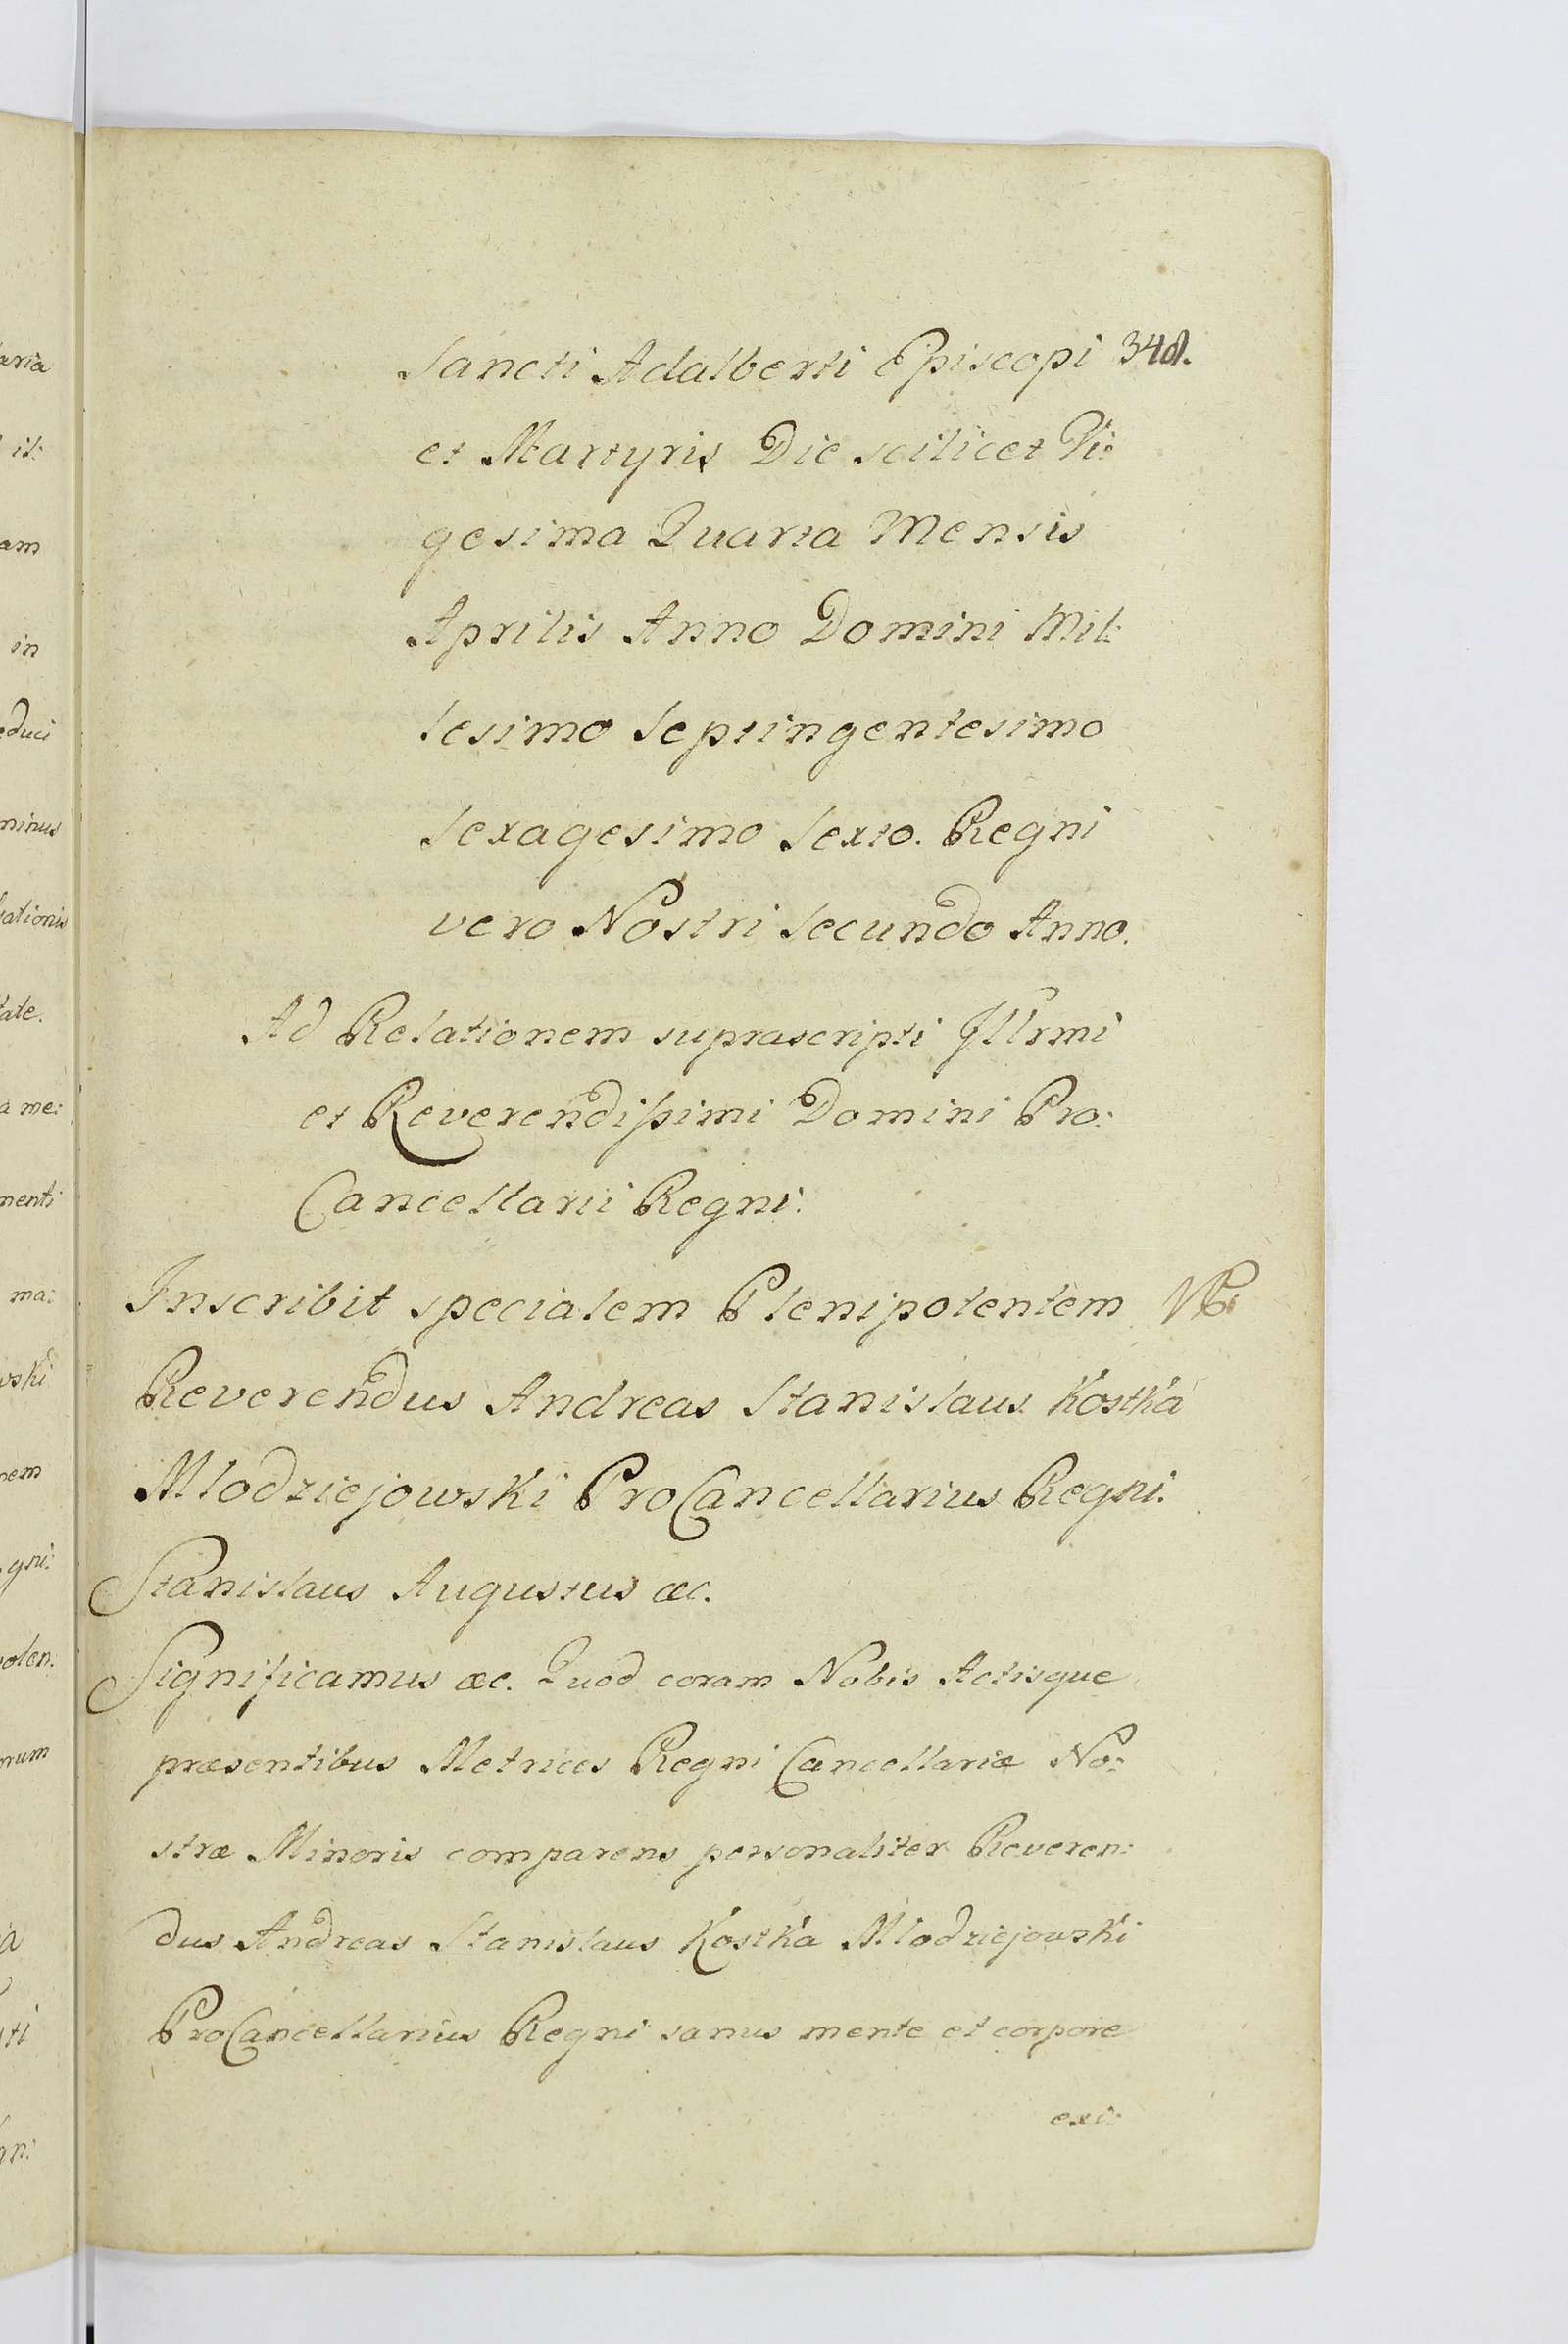 Sancti Adalberti Episcopi 348.
et Martyris Die scilicet Vi:
gesima Quarta Mensis
Aprilis Anno Domini Mil:
lesimo Septingentesimo
Sexagesimo Sexto. Regni
vero Nostri Secundo Anno.
Ad Relationem suprascripti Illrmi
et Reverendissimi Domini Pro:
Cancellarii Regni.
Inscribit specialem Plenipotentem
Reverendus Andreas Stanislaus Kostka
Mlodziejowski ProCancellarius Regni.
Stanislaus Augustus &c.
Significamus &c. Quod coram Nobis Actisque
præsentibus Metrices Regni Cancellariæ No:
stræ Minoris comparens personaliter Reveren:
dus Andreas Stanislaus Kostka Mlodziejowski
ProCancellarius Regni sanus mente et corpore
exi:
aria
it:
am
in
educi
minus
ationis
tate.
a me:
menti
ma:
wski
nem
gni:
olen:
num